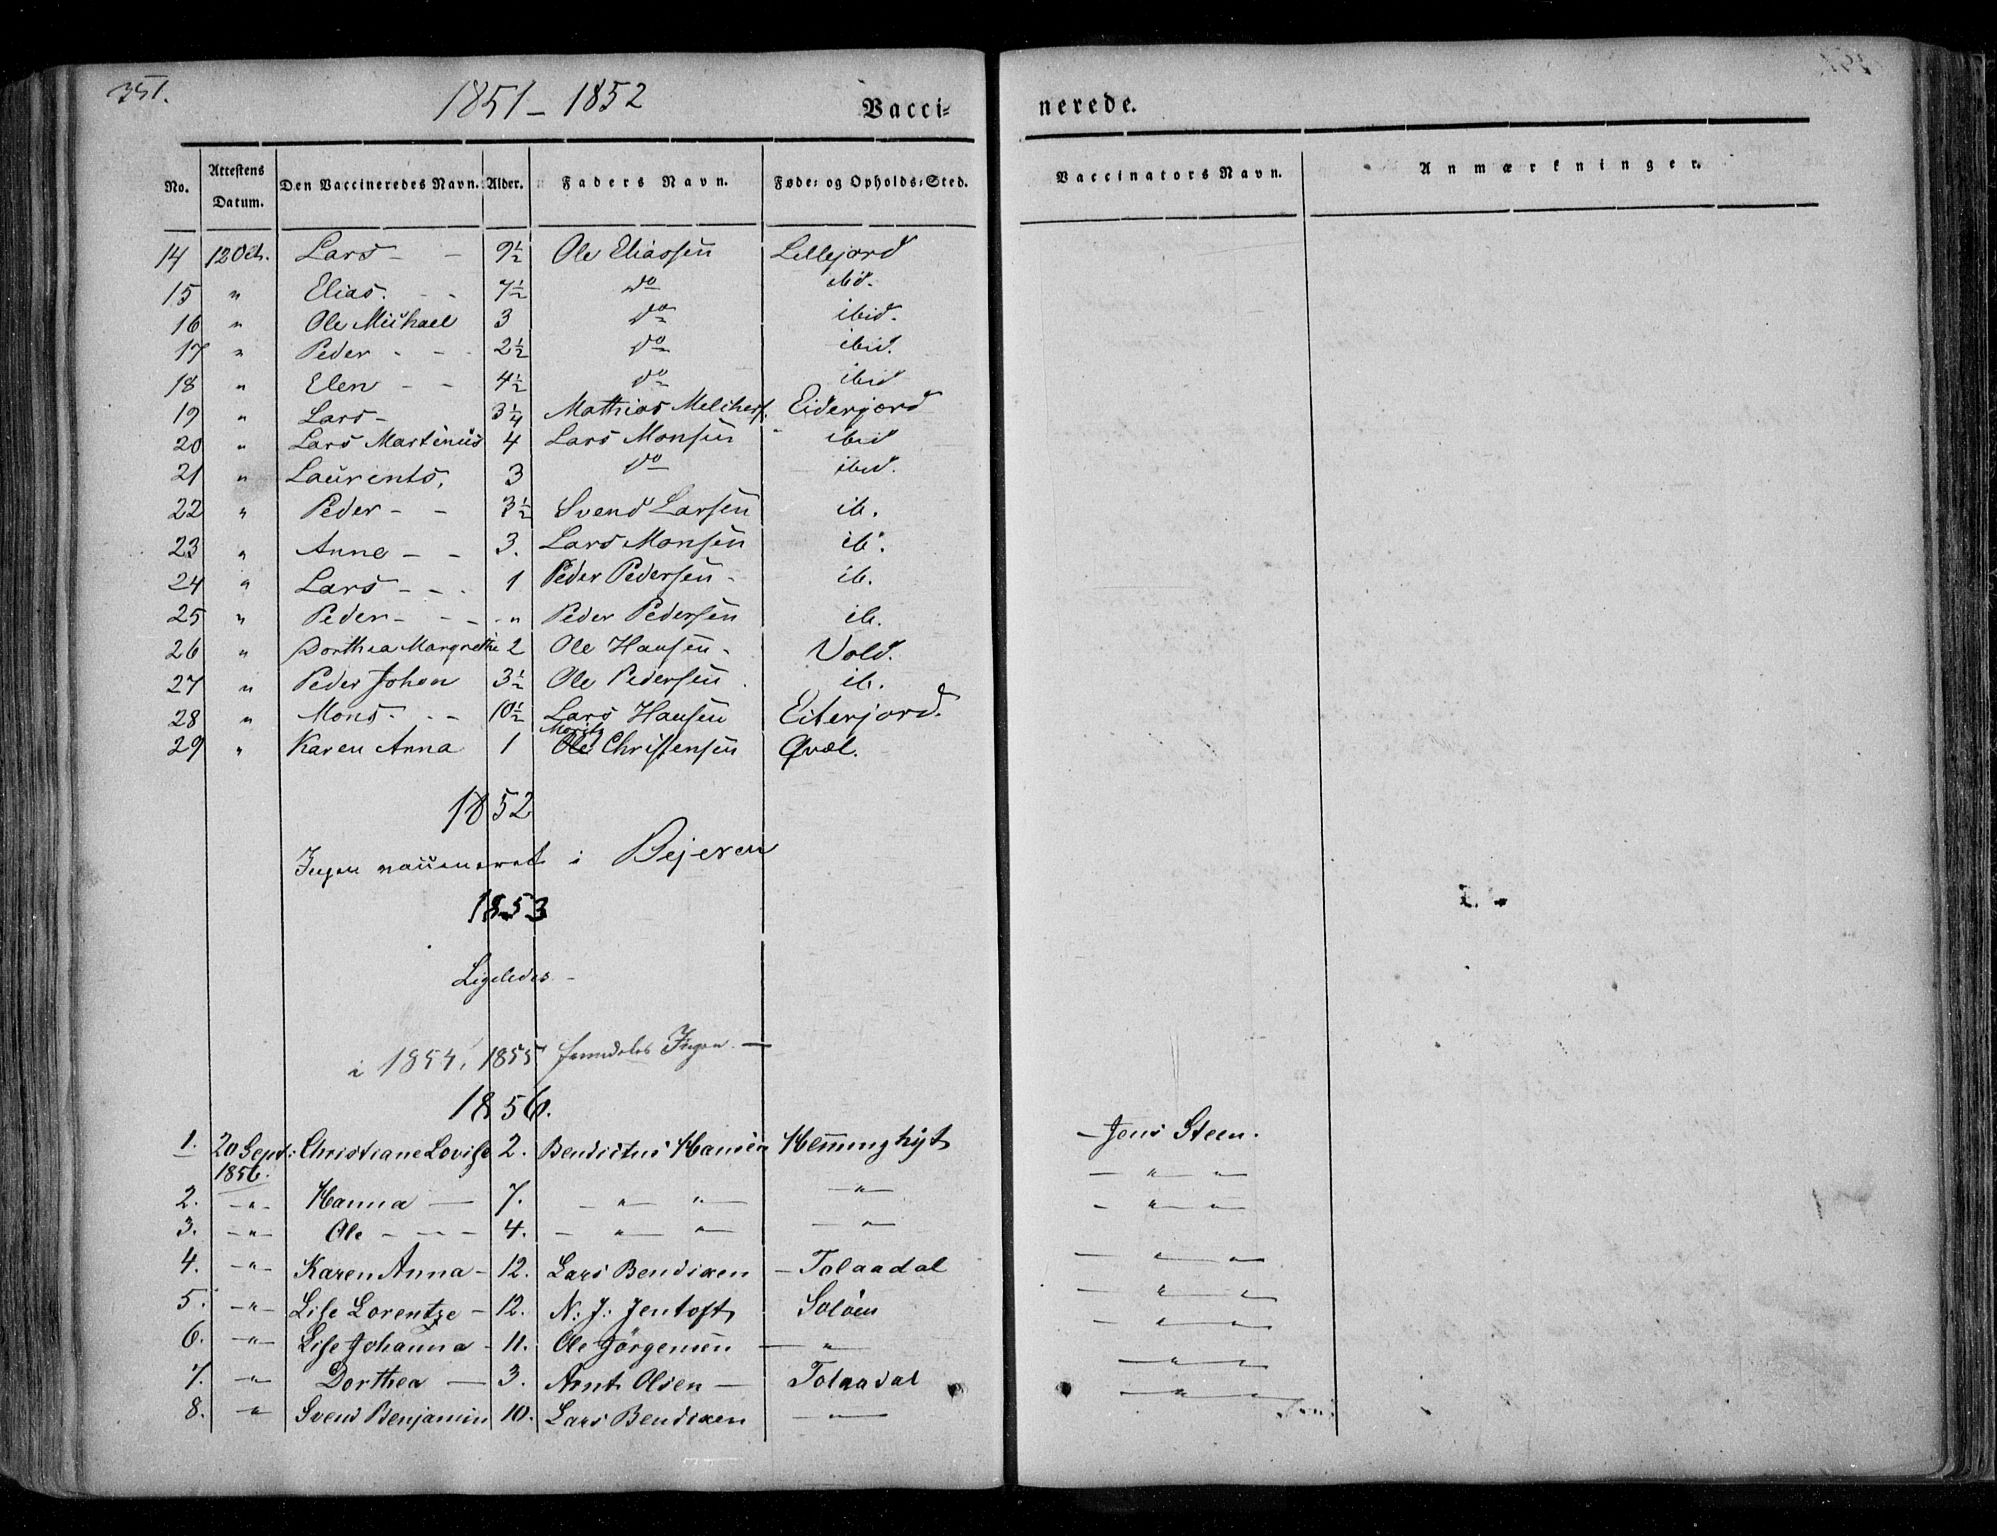 351.
1851 – 1852
Vacci= nerede.
No. Attestens Datum. Den Vaccineredes Navn. Alder. Faders Navn. Føde= og Opholds=Sted. Vaccinators Navn. Anmærkninger.
14 12 Oct. Lars - - 9½ Ole Eliassen Lillejord
15 " Elias. - - 7½ do ibid.
16 " Ole Michael 3 do ibid.
17 " Peder - - - 2½ do ibid.
18 " Elen - - 4½ do ibid
19 " Lars - 3¼ Mathias Melchers. Eiderjord
20 " Lars Martinus 4 Lars Monsen ibid
21 " Laurents, 3 do ibid.
22 " Peder - - 3½ Svend Larsen ib.
23 " Anne - - 3. Lars Monsen ib.
24 " Lars - - . 1 Peder Pedersen - ib.
25 " Peder - - - - " Peder Pedersen ib.
26 " Dorthea Margrethe 2 Ole Hansen - Vold.
27 " Peder Johan 3½ Ole Pedersen . ib.
28 " Mons - . - 10½ Lars Hansen Eiterjord.
29 " Karen Anna 1 Ole Moritz Christensen Qvæl.
1852
Ingen vaccineret i Bejeren
1853
Ligeledes -
i 1854, 1855 fremdeles Ingen. —
1856.
1. 20 Sept: 1856. Christiane Lovise 2. Benedictus Hansen Hemminghyt – Jens Steen.
— " " —
2. -"- Hanna — 7. - " "— —"— - " "—
3. -"- Ole - - - 4. - " "— —"—
4. -"- Karen Anna - 12. Lars Bendixen – Tolaadal — " "—
5. -"- Lise Lorentze - 12. N: J: Jentoft Soløen — " "—
6. -"- Lise Johanna - 11. Ole Jørgensen — " — " "—
7. -"- Dorthea — 3. Arnt Olsen — Tolaadal — " "—
8. -" Svend Benjamin 10. Lars Bendixen —"— — " "